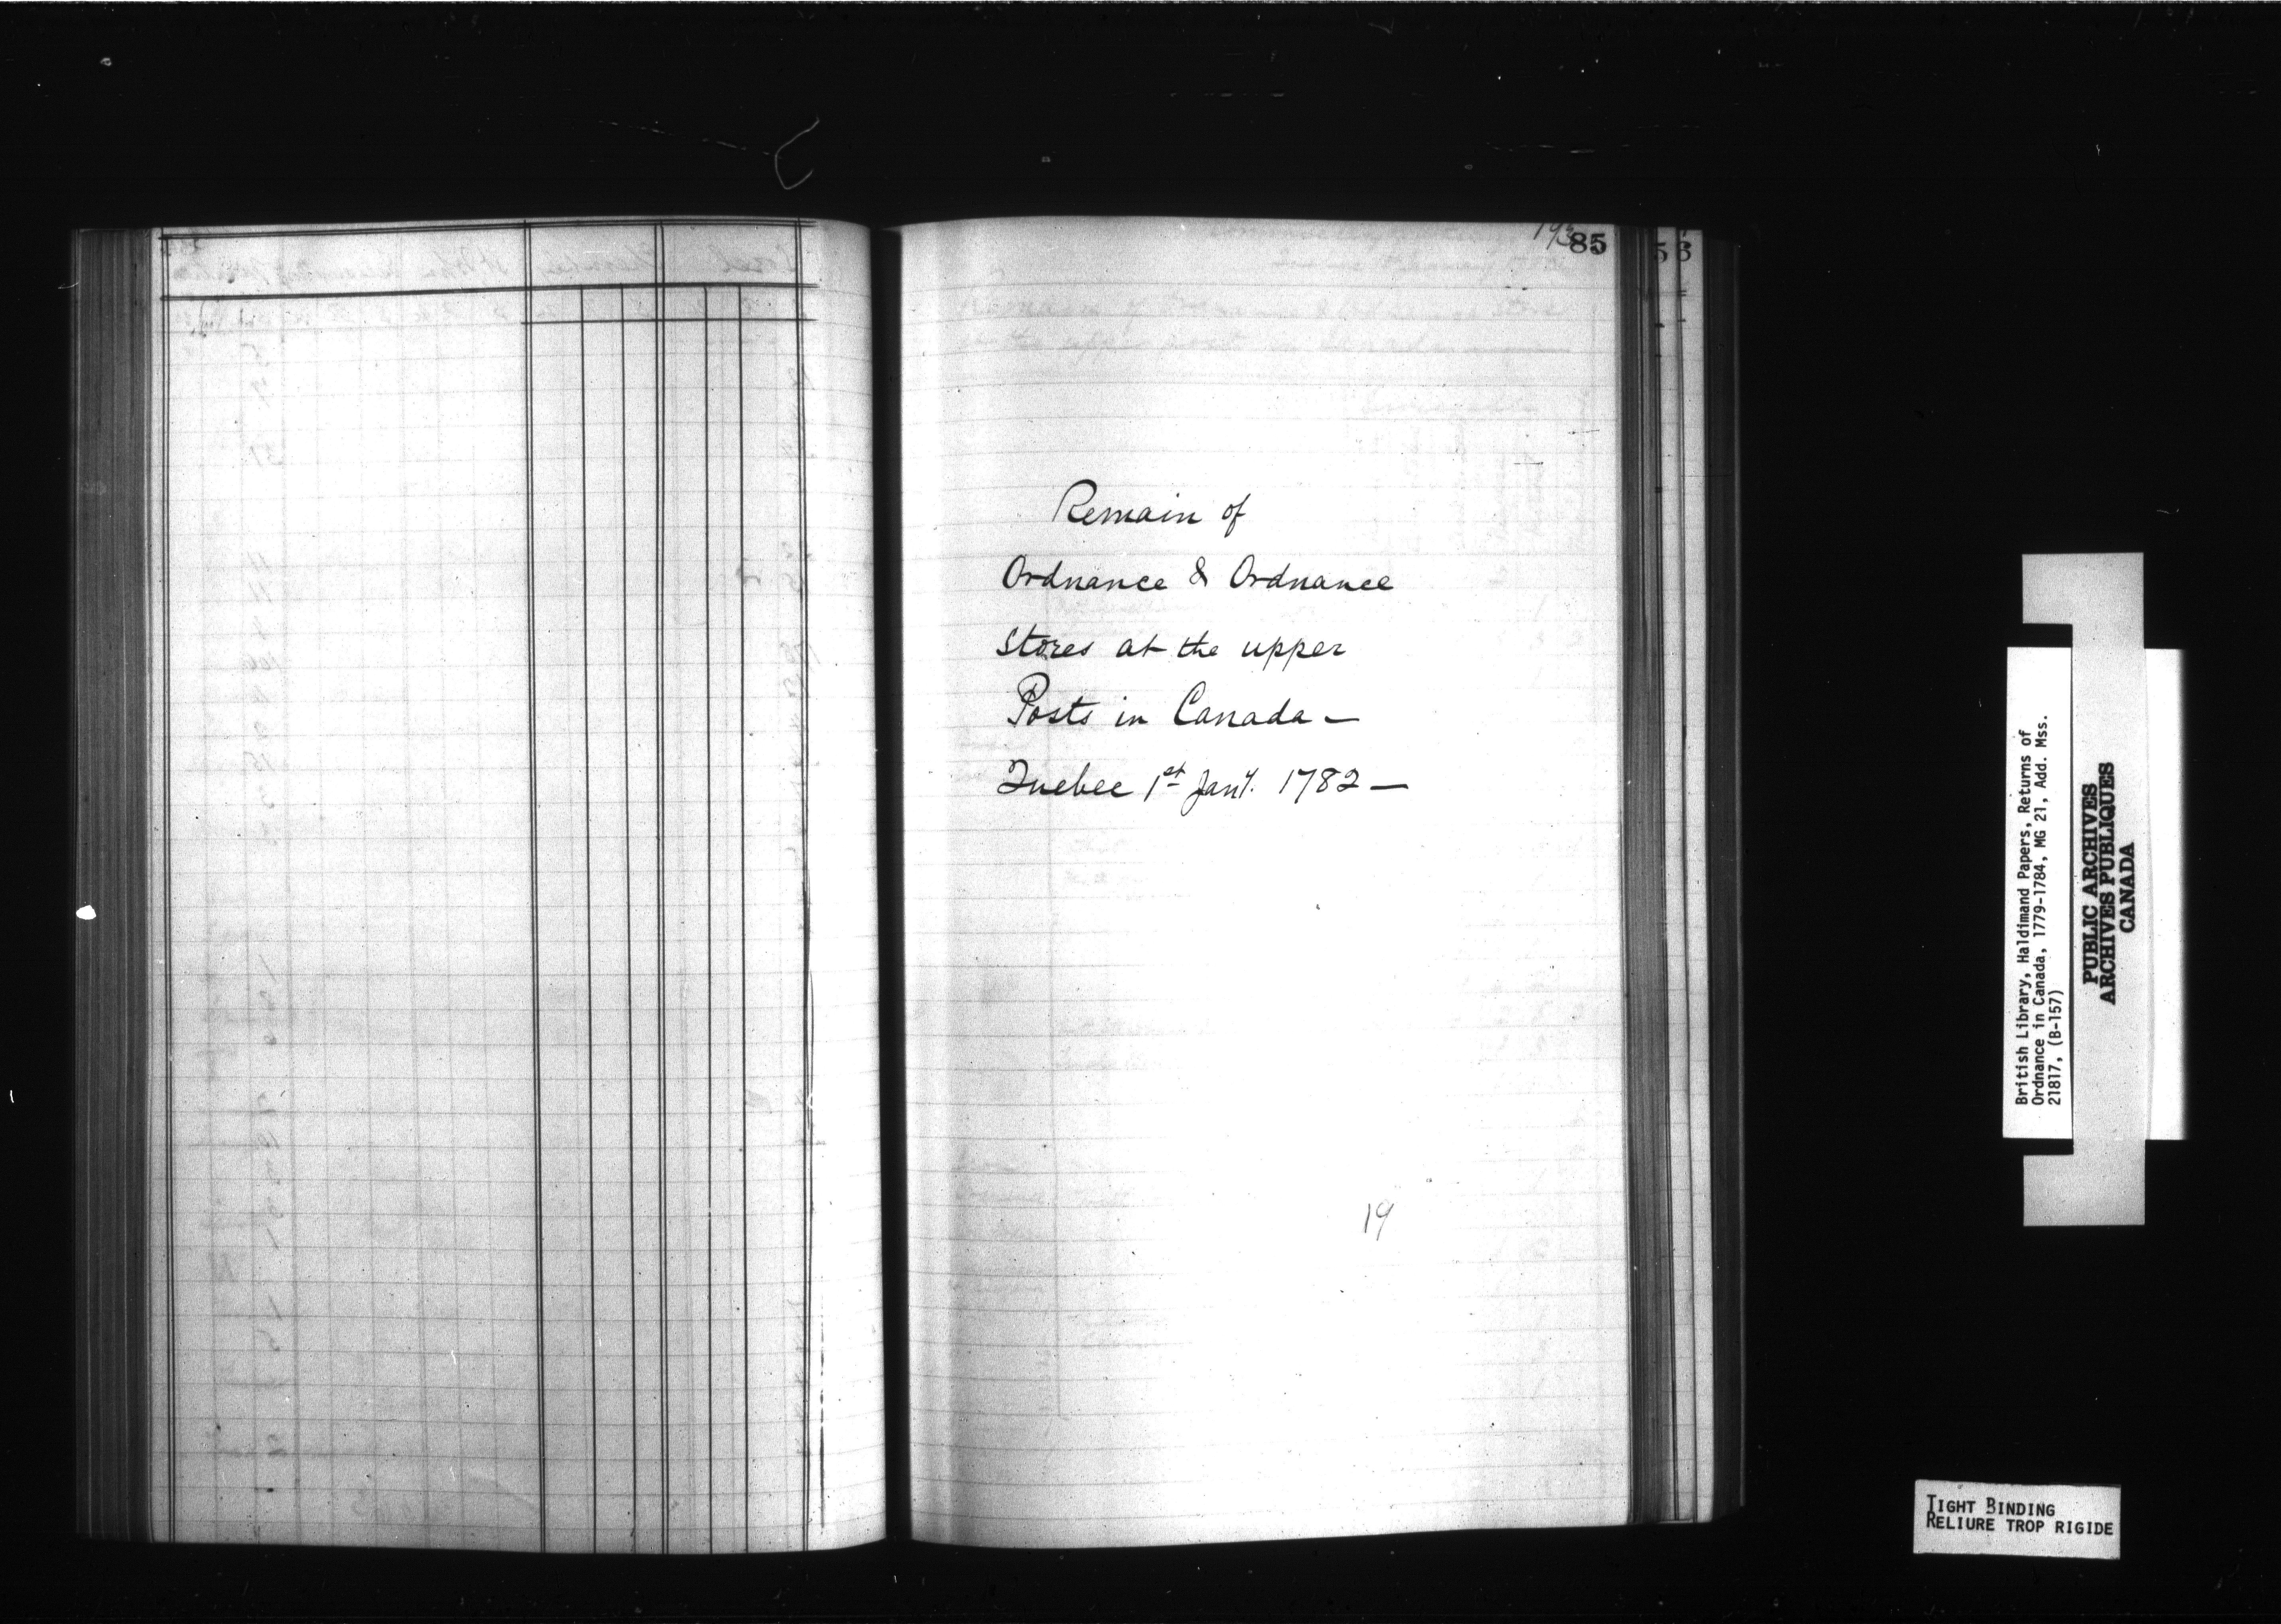 193
85
Remain of
Ordnance & Ordnance
Stores at the upper
Posts in Canada —
Quebec 1st Jany. 1782 —
19
British Library, Haldimand Papers, Returns of
Ordnance in Canada, 1779-1784, MG 21, Add. Mss.
21817, (B-157)
PUBLIC ARCHIVES
ARCHIVES PUBLIQUES
CANADA
TIGHT BINDING
RELIURE TROP RIGIDE